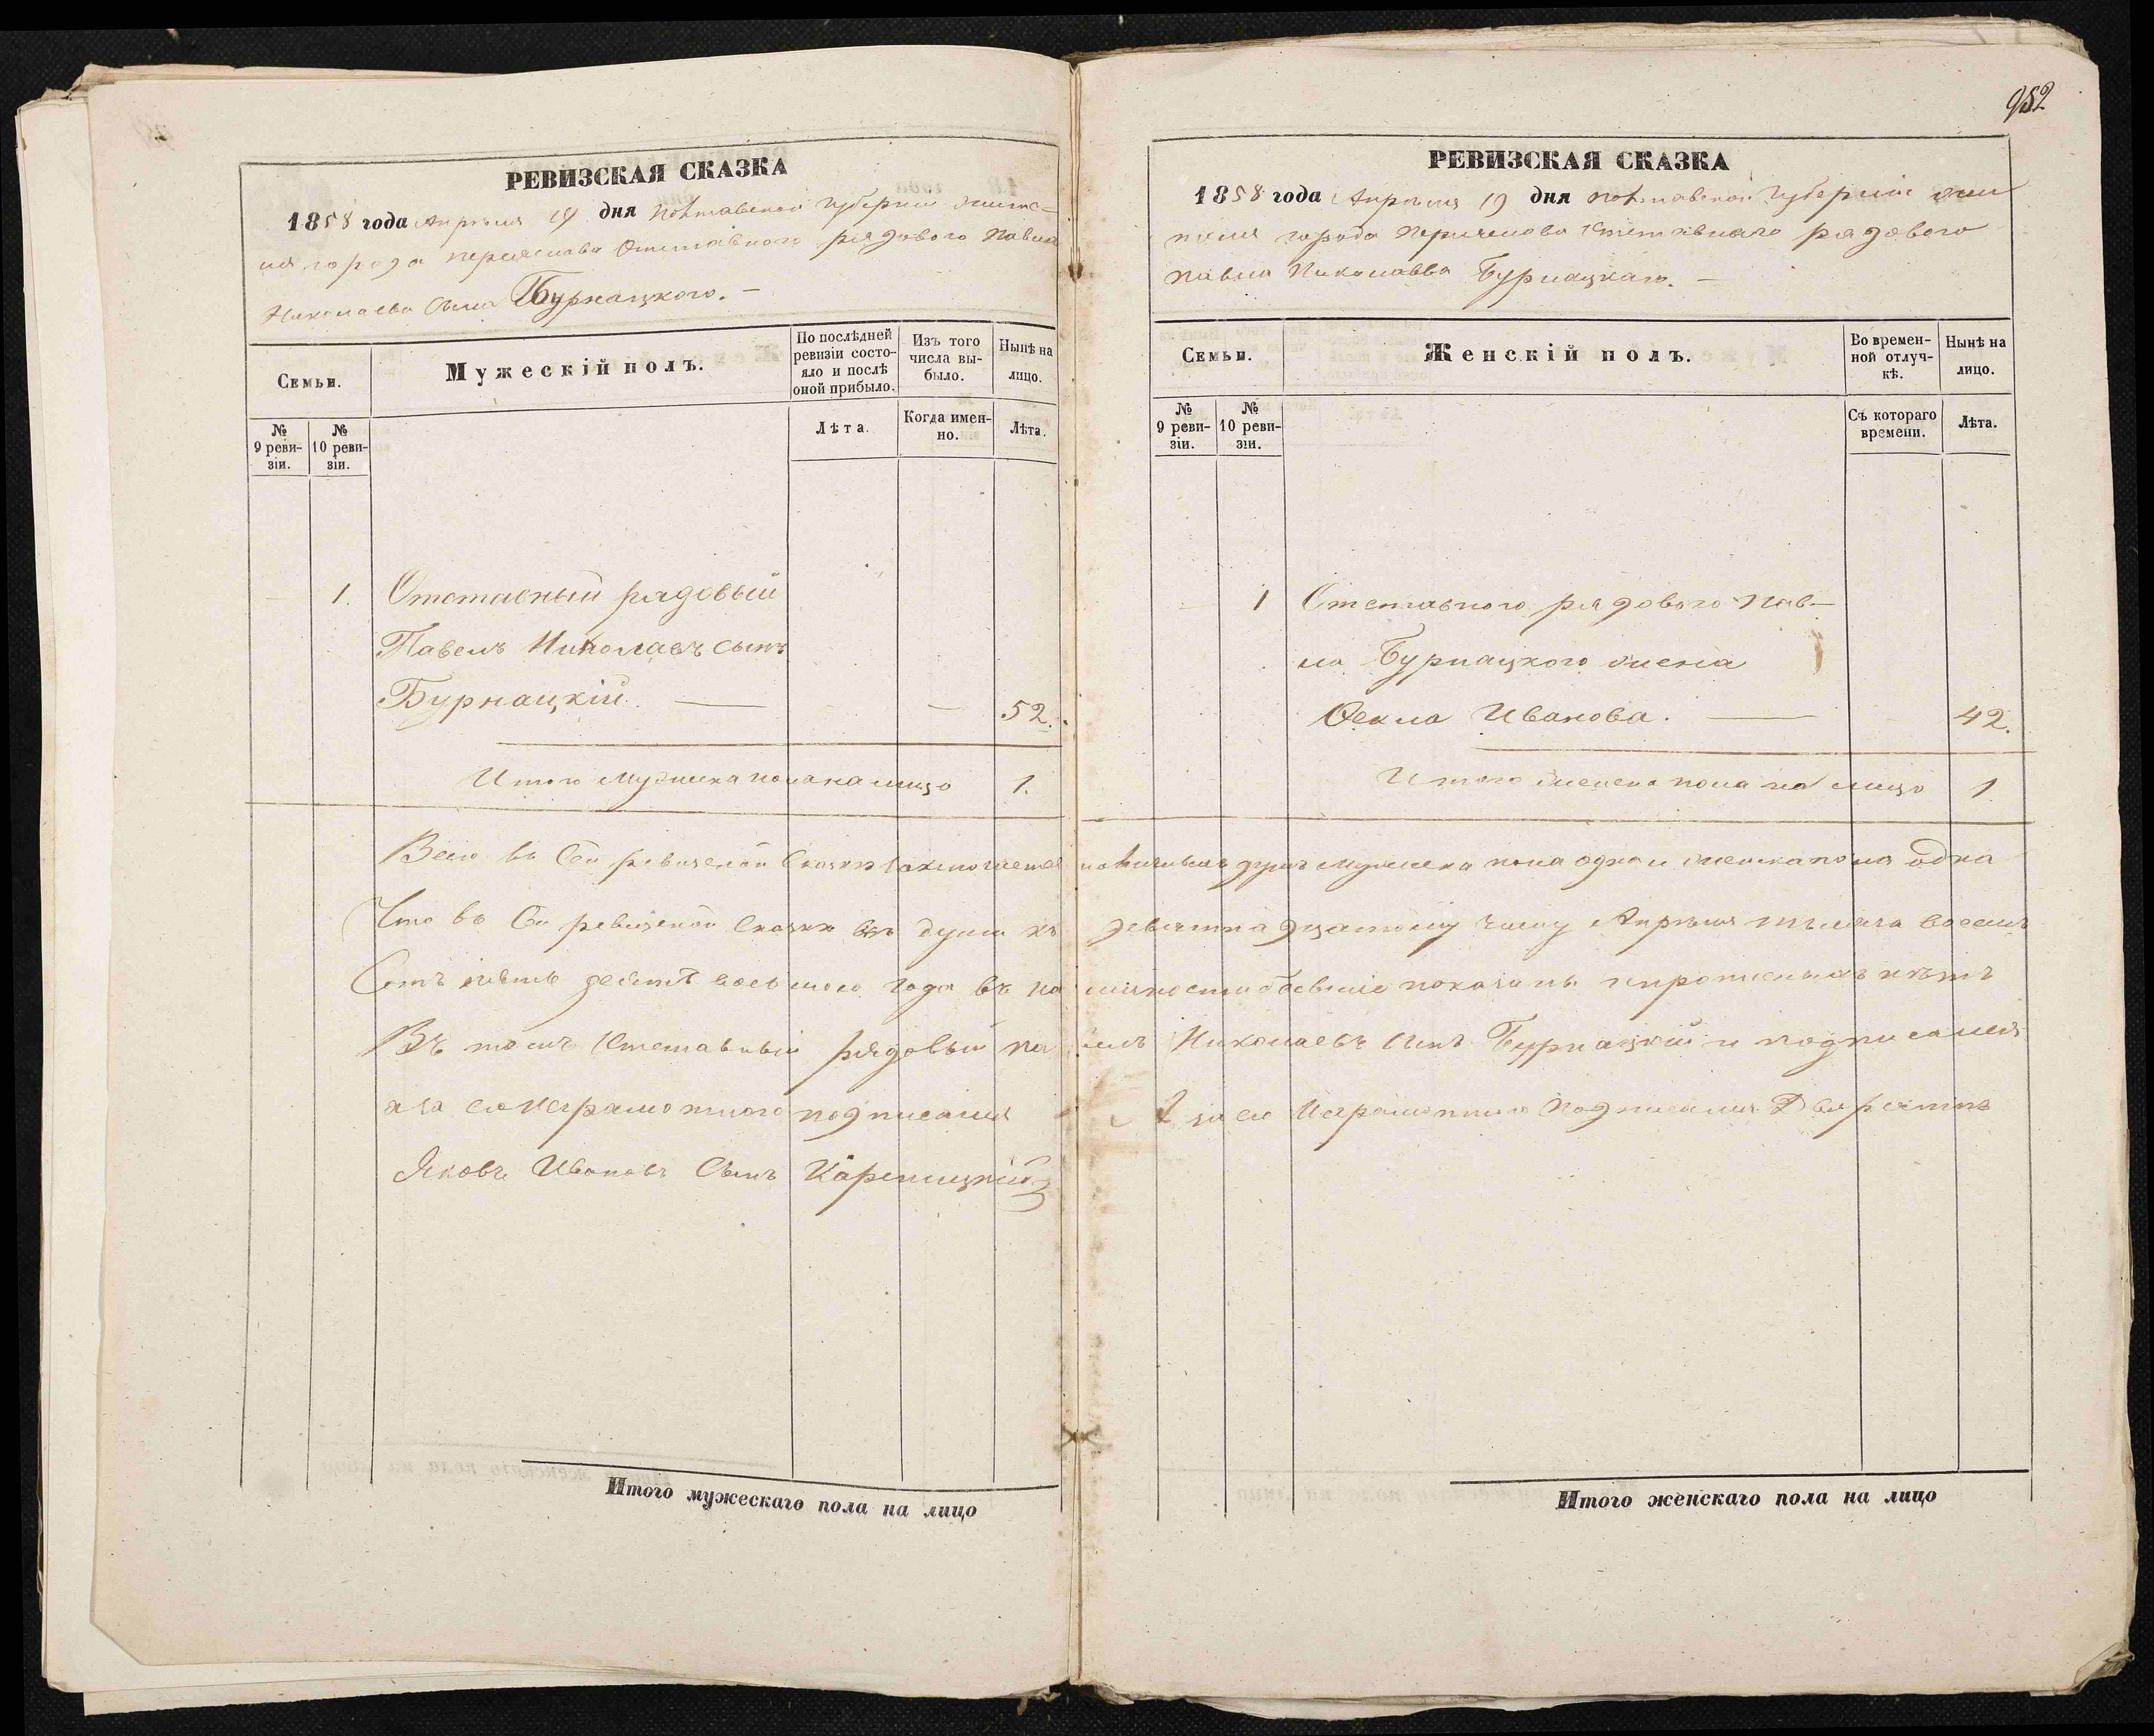 РЕВИЗСКАЯ СКАЗКА
1858 года Апрѣля 19 дня Полтавской Губерніи жите-
ля города Переяслава Отставного рядового Павла
Николаева сына Бурнацкого. —
Семьи.
Мужескій полъ.
По послѣдней ревизіи состо-
яло и послѣ оной прибыло.
Изъ того числа вы-
было.
Нынѣ на лицо.
№ 9 реви-
зіи.
№ 10 реви-
зіи.
Лѣта.
Когда имен-
но.
Лѣта.
1. Отставный рядовый
Павелъ Николаевъ сынъ
Бурнацкій. — — 52.
Итого мужеска пола на лицо 1.
952
РЕВИЗСКАЯ СКАЗКА
1858 года Апрѣля 19 дня Полтавской Губерніи жи
теля города Переяслова Отставнаго рядового
Павла Николаева Бурнацкаго. —
Семьи.
Женскій полъ.
Во времен-
ной отлуч-
кѣ.
Нынѣ на лицо.
№ 9 реви-
зіи.
№ 10 реви-
зіи.
Съ котораго времени.
Лѣта.
1 Отставного рядового Пав-
ла Бурнацкого жена
Фекла Иванова. — 42.
Итого женска пола на лицо 1
Всего въ сей ревизской сказкѣ заключается наличныхъ душъ мужеска пола одна и женска пола одна
Что въ сей ревизской сказкѣ всѣ души къ девятнадцатому числу Апрѣля мѣсяца восемь
Сотъ пять десятъ восьмого года въ наличности бывшіе показаны и прописныхъ нѣтъ
Въ томъ Отставный рядовый Павелъ Николаевъ сынъ Бурнацкій и подписался
а за его неграмотного подписался за его неграмотного подписался
Яковъ Ивановъ Сынъ
Итого мужескаго пола на лицо
Итого женскаго пола на лицо